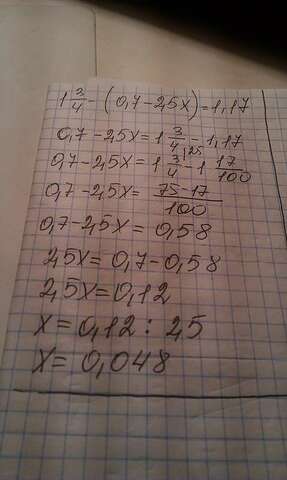 1 3/4 - (0,7 - 2,5x) = 1,17
0,7 - 2,5x = 1 3/4 - 1,17
0,7 - 2,5x = 1 3/4 |25 - 1 17/100
0,7 - 2,5x = 75-17/100
0,7 - 2,5x = 0,58
2,5x = 0,7 - 0,58
2,5x = 0,12
x = 0,12 : 2,5
x = 0,048